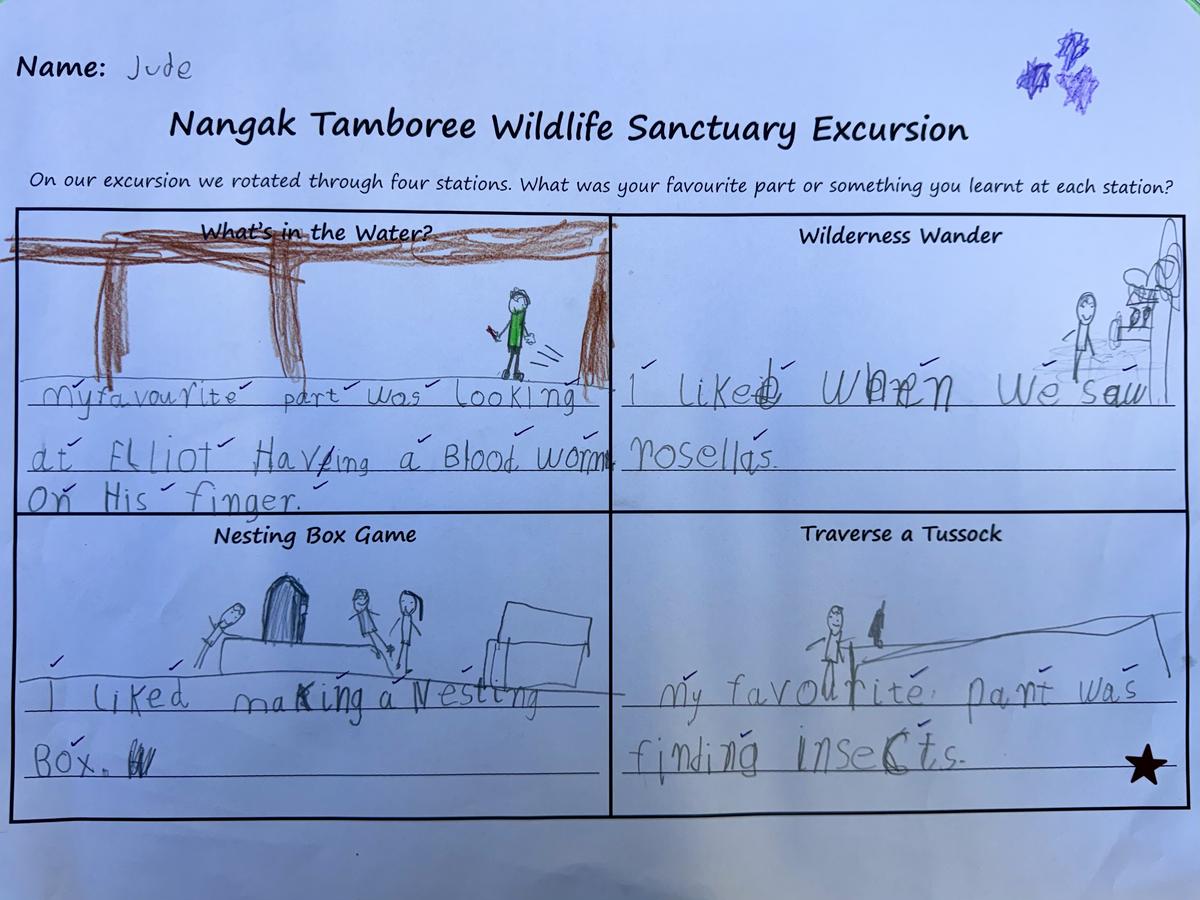 Name: Jude
Nangak Tamboree Wildlife Sanctuary Excursion
On our excursion we rotated through four stations. What was your favourite part or something you learnt at each station?
What's in the Water?
my favourite part was looking
at Elliot Having a Blood worm
on His finger.
Wilderness Wander
I liked when we saw
rosellas.
Nesting Box Game
I liked making a Nesting
Box.
Traverse a Tussock
my favourite part was
finding insects.